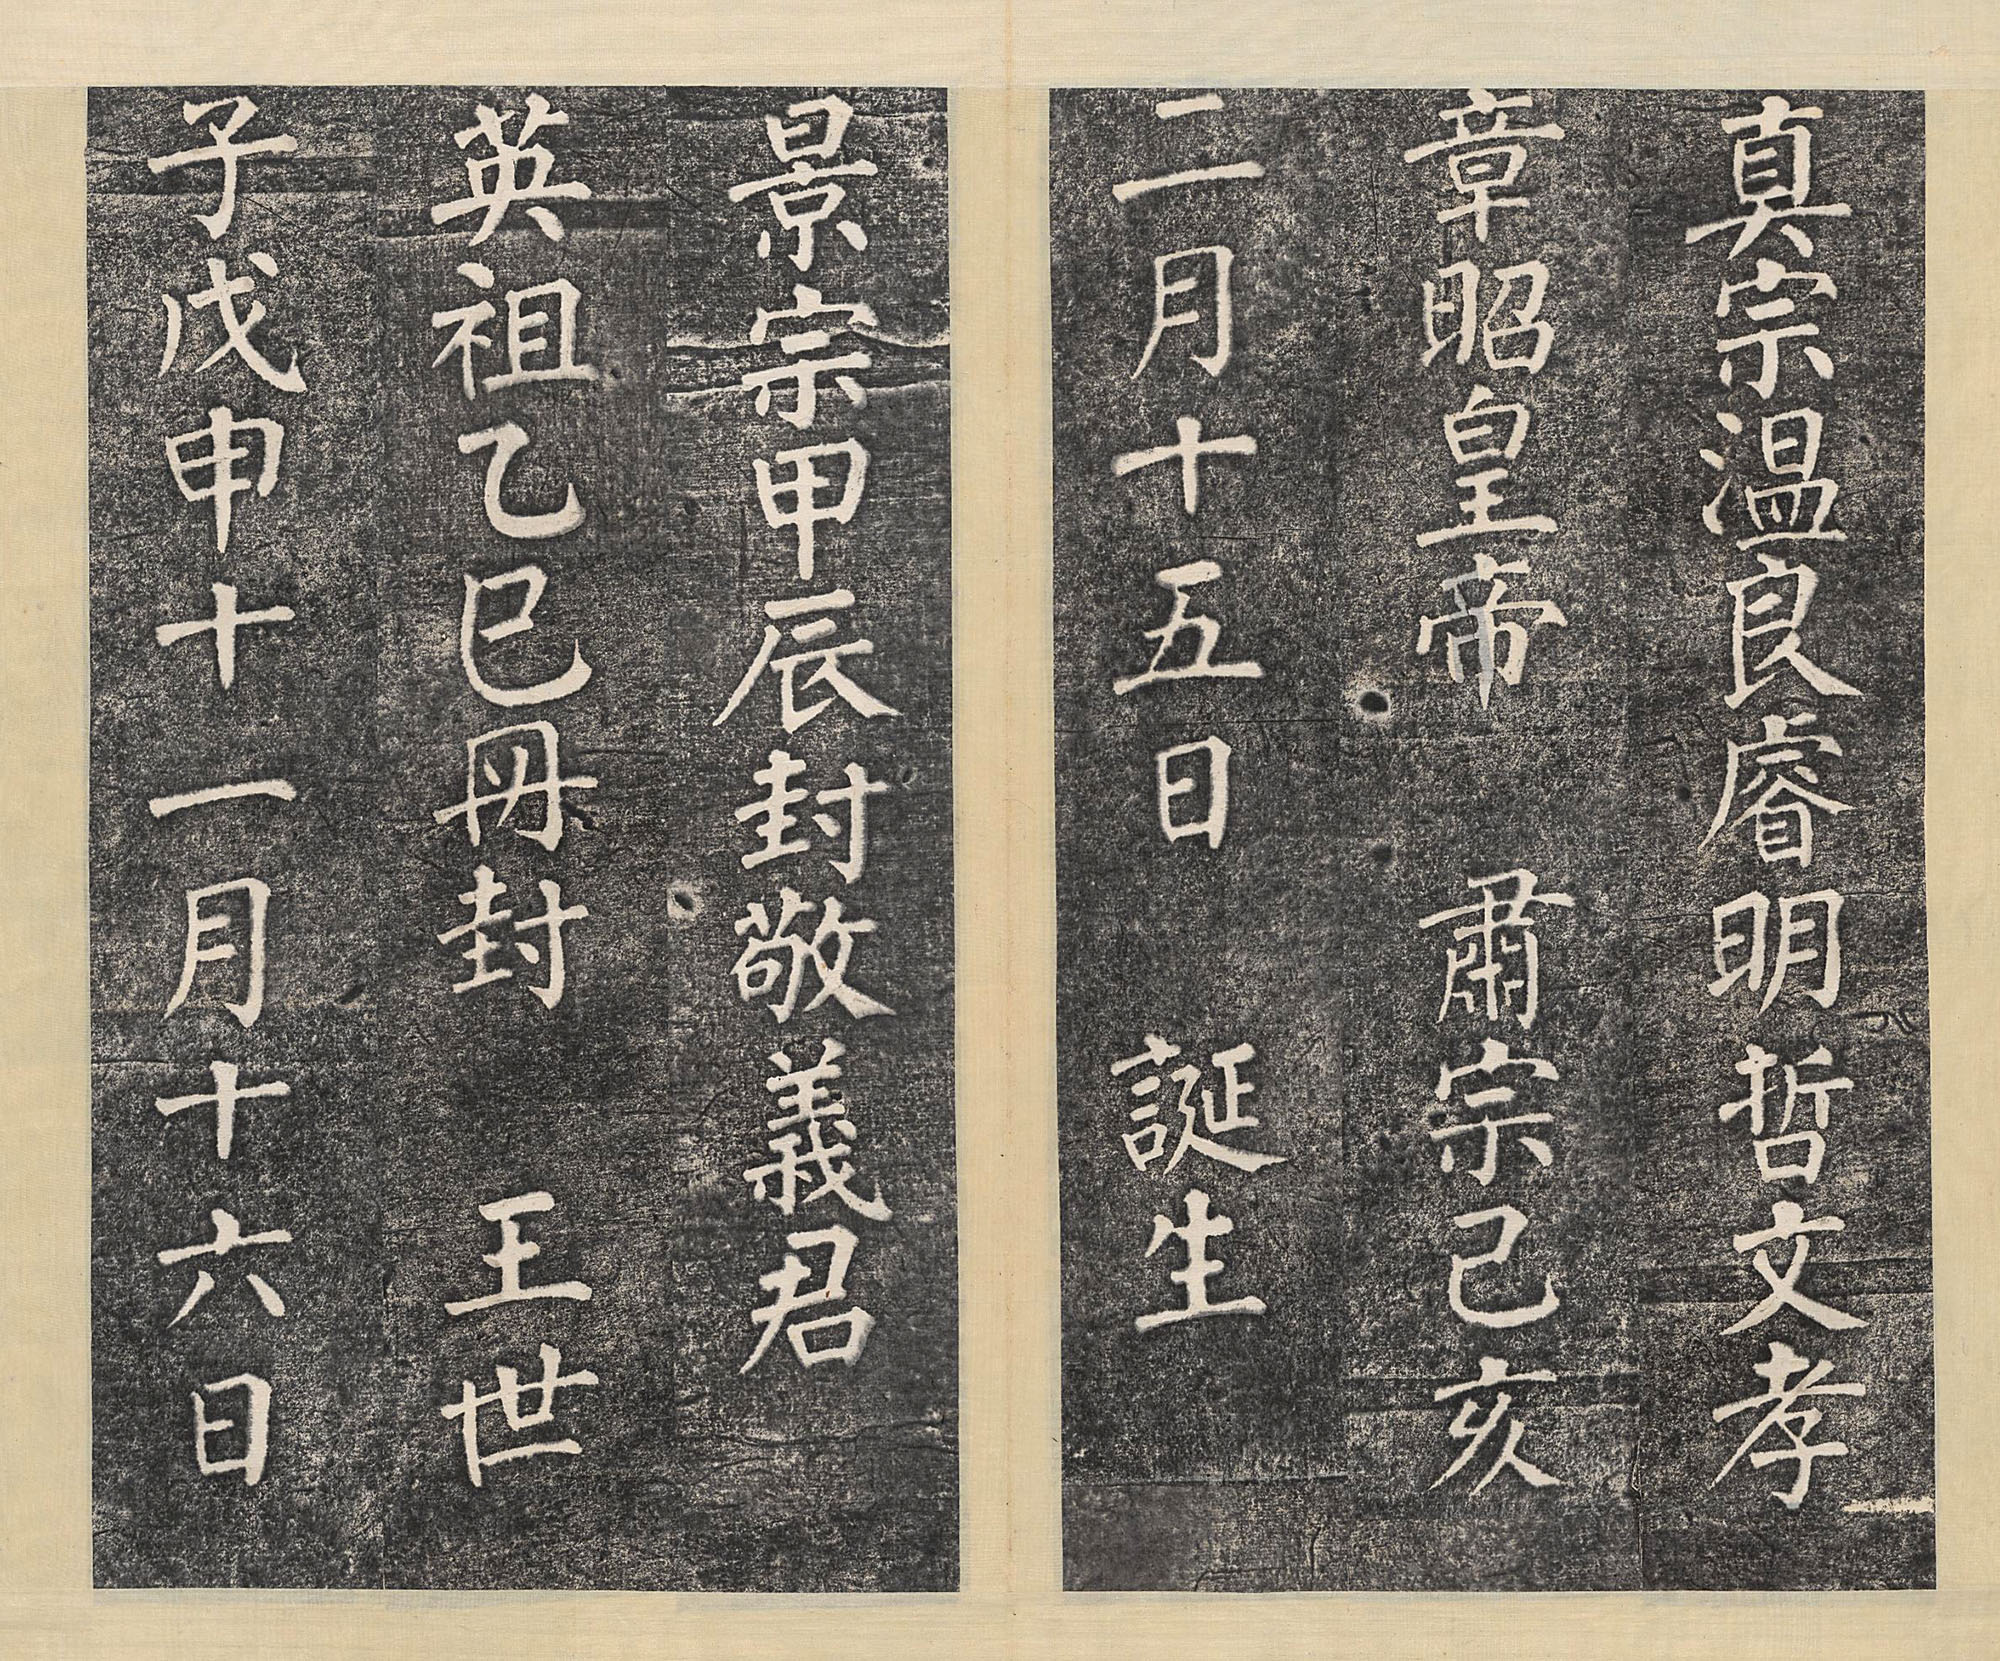 真宗温良睿明哲文孝
章昭皇帝 肅宗己亥
二月十五日 誕生
景宗甲辰封敬義君
英祖乙巳冊封 王世
子戊申十一月十六日